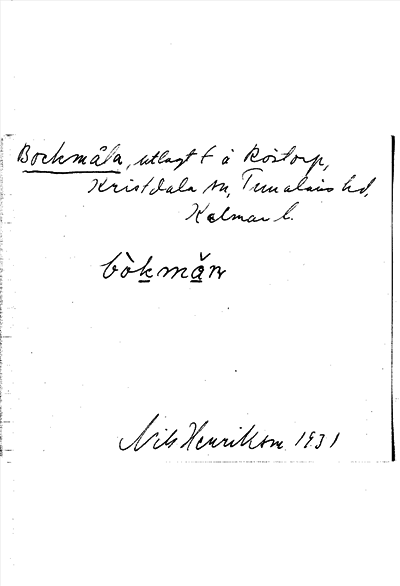 Bockmåla, utlagt t å Röstorp,
Kristdala sn, Tunaläns hd,
Kalmar l.
bòkmǎn
Nils Henrikson 1931